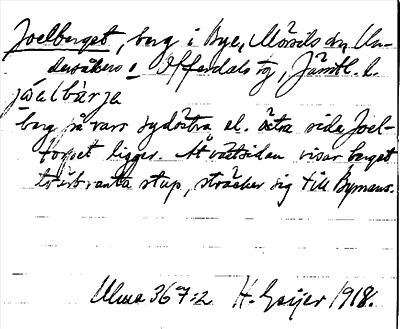 Joelberget, berg i Bye, Mörsils sn, Un-
dersåkers o Offerdals tg, Jämtl. l.
jòelbàrja
berg på vars sydöstra el. östra sida Joel-
torpet ligger. Åt västsidan visar berget
tvärbranta stup, sträcker sig till Bymans.
Ulma 367:2 H. Geijer 1918.